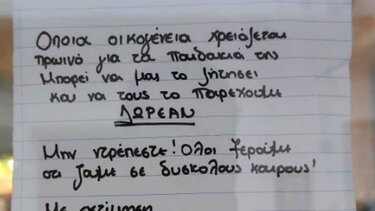 Όποια οικογένεια χρειάζεται
πρωινό για τα παιδάκια της
Μπορεί να μας το ζητήσει
και να τους το παρέχουμε
ΔΩΡΕΑΝ
Μην ντρέπεστε! Όλοι ξέρουμε
οτι ζούμε σε δύσκολους καιρούς!
Με εκτίμηση